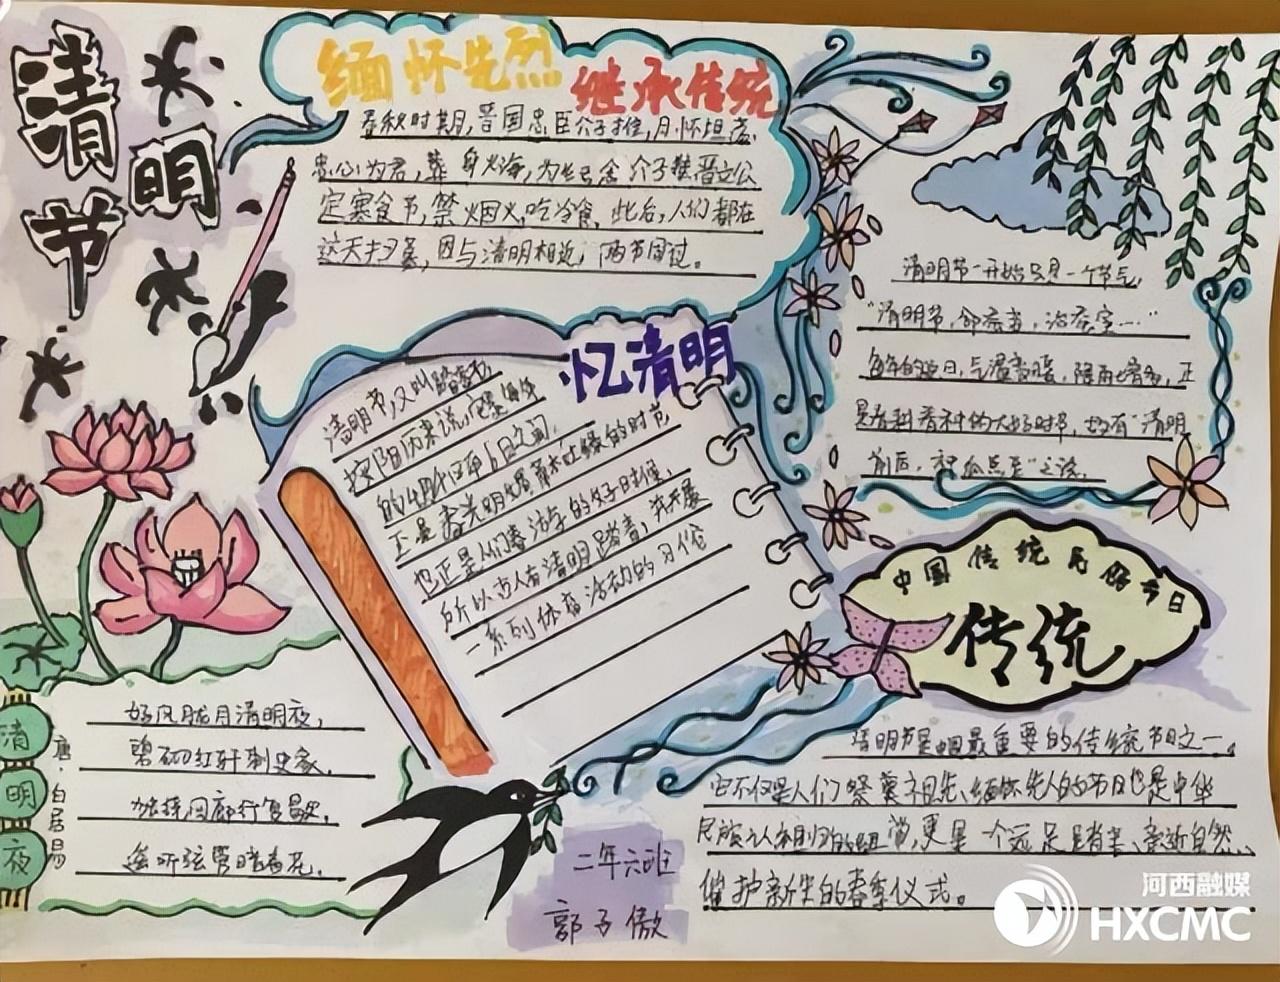 清明节
缅怀先烈 继承传统
春秋时期,晋国忠臣介子推,月怀坦荡,
忠心为君,葬身火海,为纪念介子推晋文公
定寒食节,禁烟火,吃冷食,此后,人们都在
这天扫墓,因与清明相近,两节同过。
忆清明
清明节,又叫踏青节
按阳历来说,它是每年
的4月4日至6日之间,
正是春光明媚草木吐绿的时节
也正是人们春游的好时候,
所以古人有清明踏青,并开展
一系列体育活动的习俗
清明节一开始只是一个节气,
"清明节,
每年的 日,气温变暖,降雨 ,正
是春耕春种的大好时节,故有"清明
前后,种瓜点豆"之说。
中国传统民俗节日
传统
清明节是中国最重要的传统节日之一,
它不仅是人们祭奠祖先、缅怀先人的节日也是中华
民族认祖归 的纽带,更是一个远足踏青、亲近自然、
催护新生的春季仪式。
清明夜
唐·白居易
好风胧月清明夜,
碧砌红轩刺史家。
独绕回廊行复歇,
遥听弦管暗看花。
二年六班
郭子傲
河西融媒
HXCMC